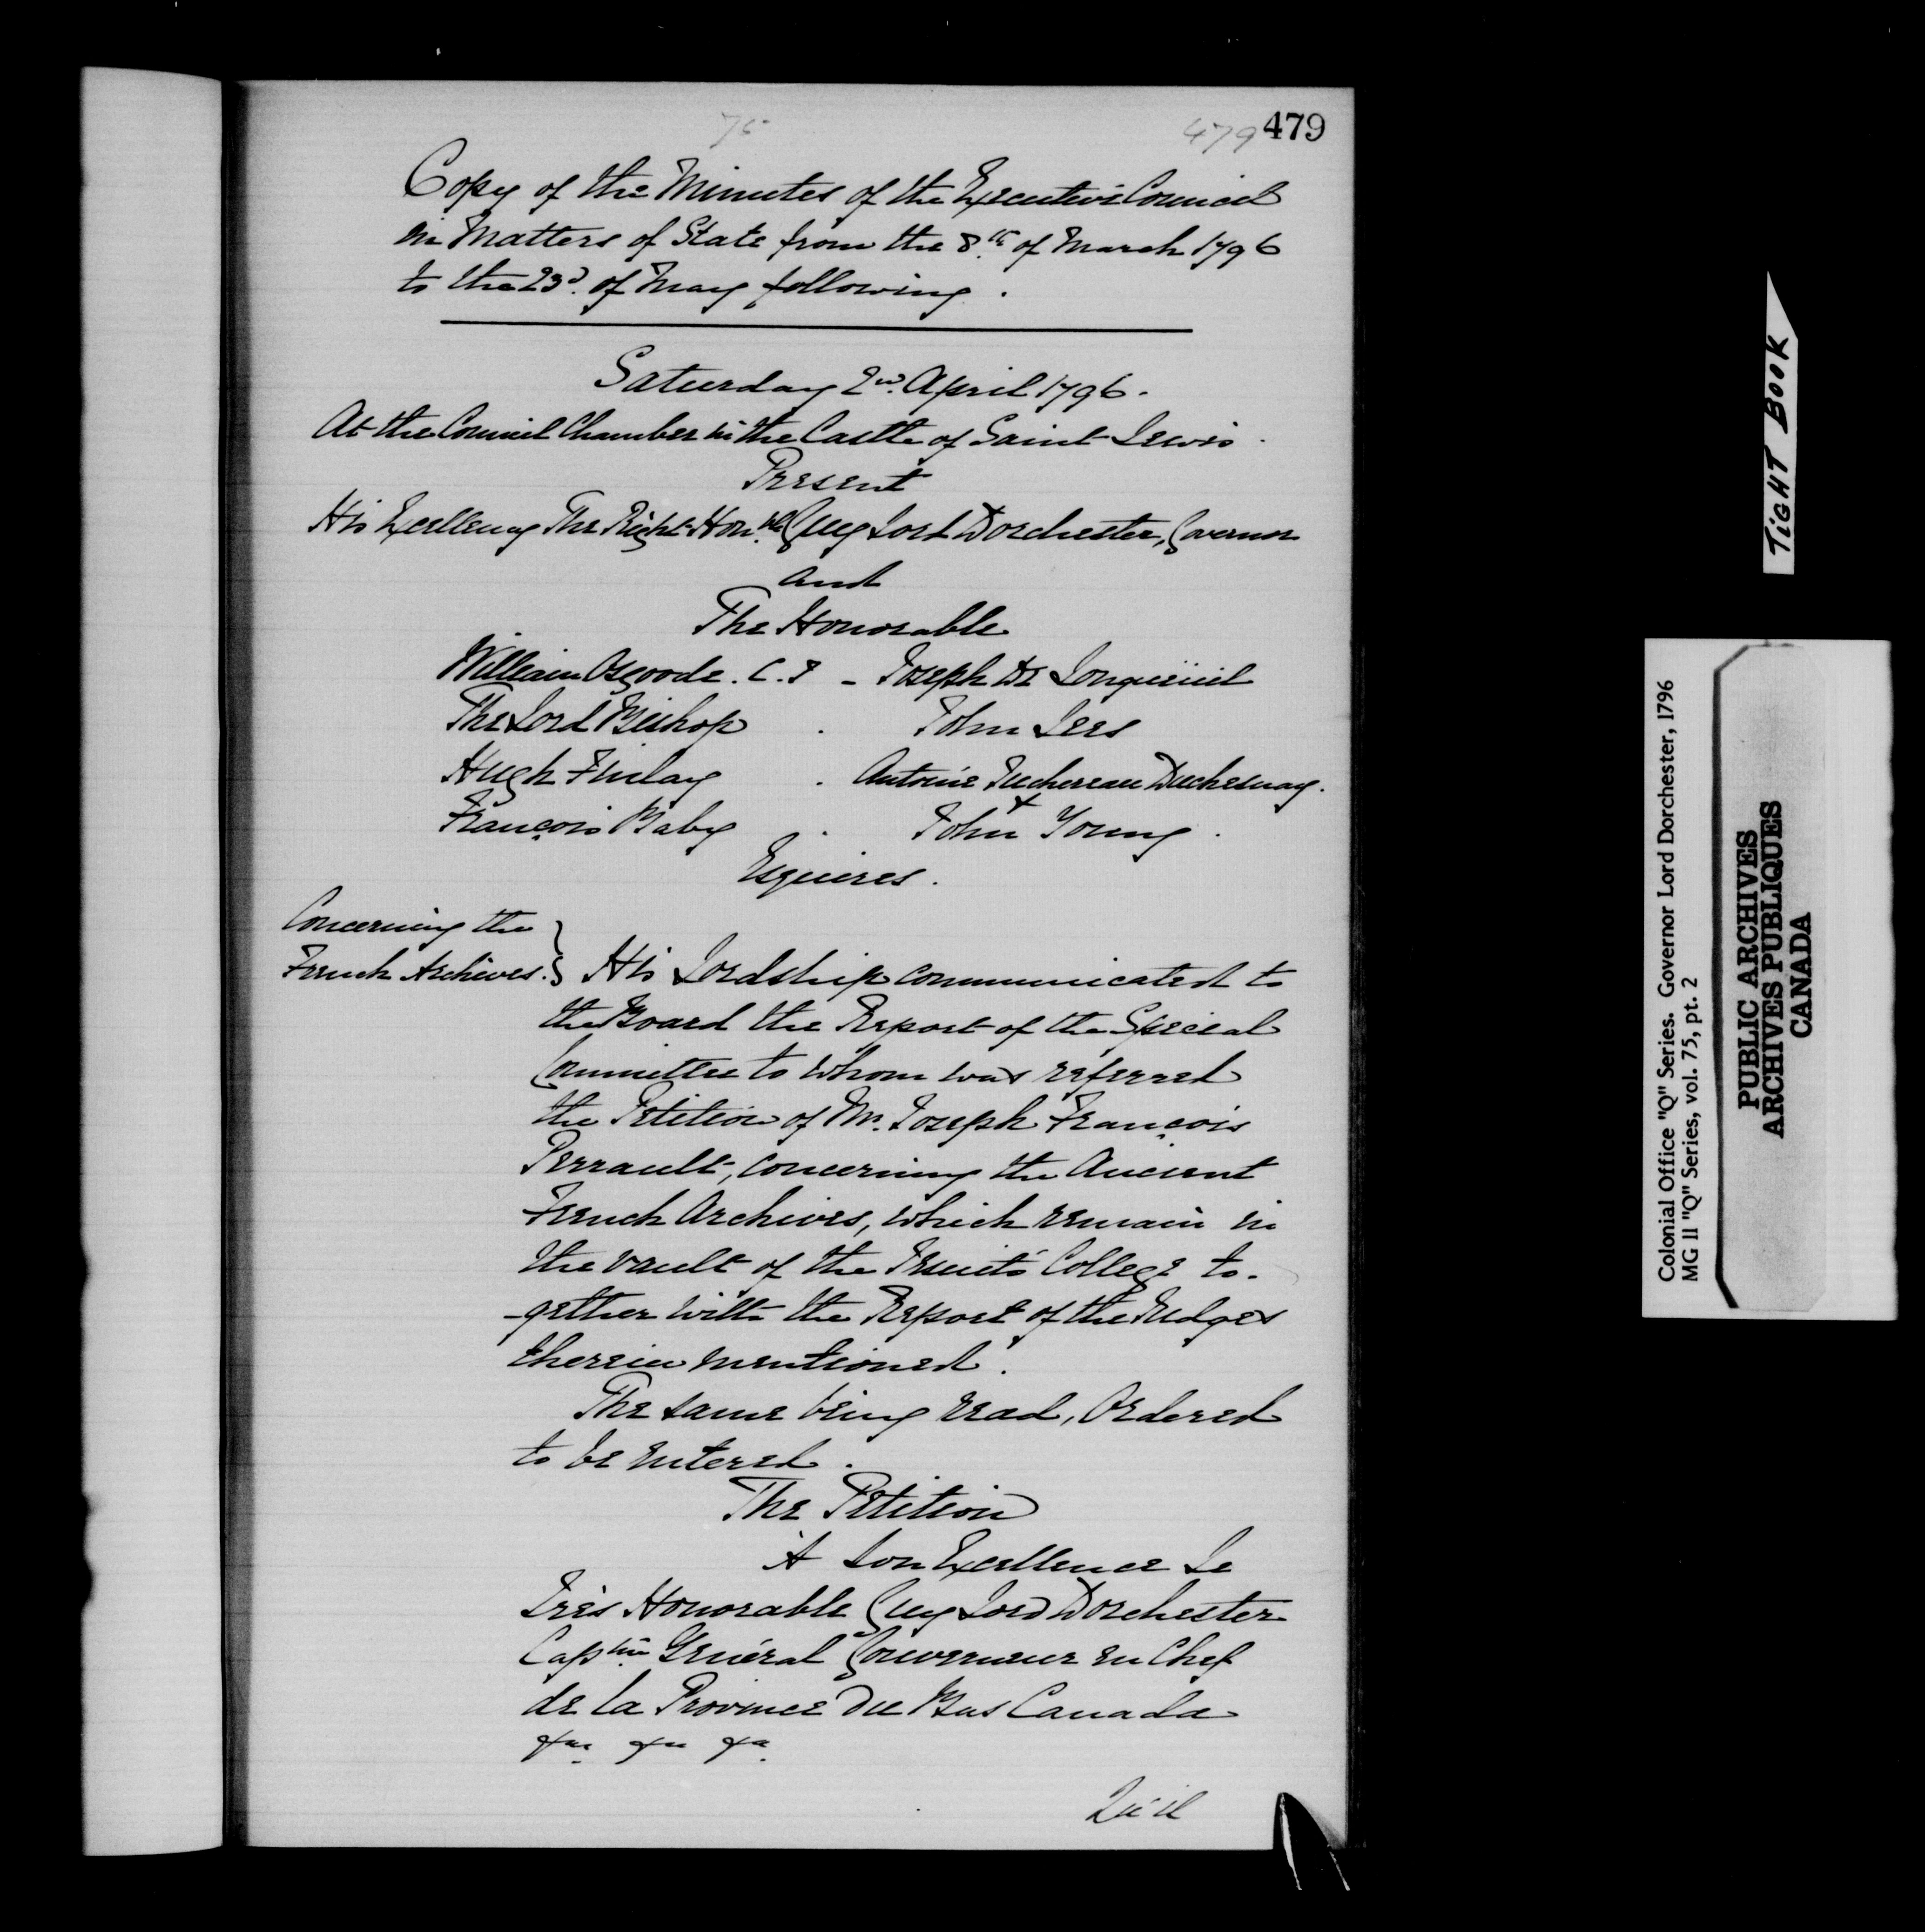 75
479 479
Copy of the Minutes of the Executive Council
in Matters of State from the 8th. of March 1796
to the 23d. of May following.
Saturday 2nd. April 1796.
At the Council Chamber in the Castle of Saint Lewis.
Present
His Excellency The Right Honble. Guy Lord Dorchester, Governor
and
The Honorable
William Osgoode. C.J - Joseph De Longueüil
The Lord Bishop . John Lees
Hugh Finlay . Antoine Juchereau Duchesnay.
François Baby . John Young.
Esquires.
Concerning the
French Archives. } His Lordship communicated to
the Board the Report of the Special
Committee to whom was referred
the Petition of Mr. Joseph François
Perrault, concerning the Ancient
French Archives, which remain in
the vault of the Jesuits' College to-
-gether with the Report of the Judges
therein mentioned.
The same being read, Ordered
to be entered.
The Petition
A Son Excellence Le
Très Honorable Guy Lord Dorchester
Captn. Général Gouverneur en Chef
de la Province du Bas Canada
&a. &a &a.
Qu'il
TIGHT BOOK
Colonial Office "Q" Series. Governor Lord Dorchester, 1796
MG 11 "Q" Series, vol. 75, pt. 2
PUBLIC ARCHIVES
ARCHIVES PUBLIQUES
CANADA